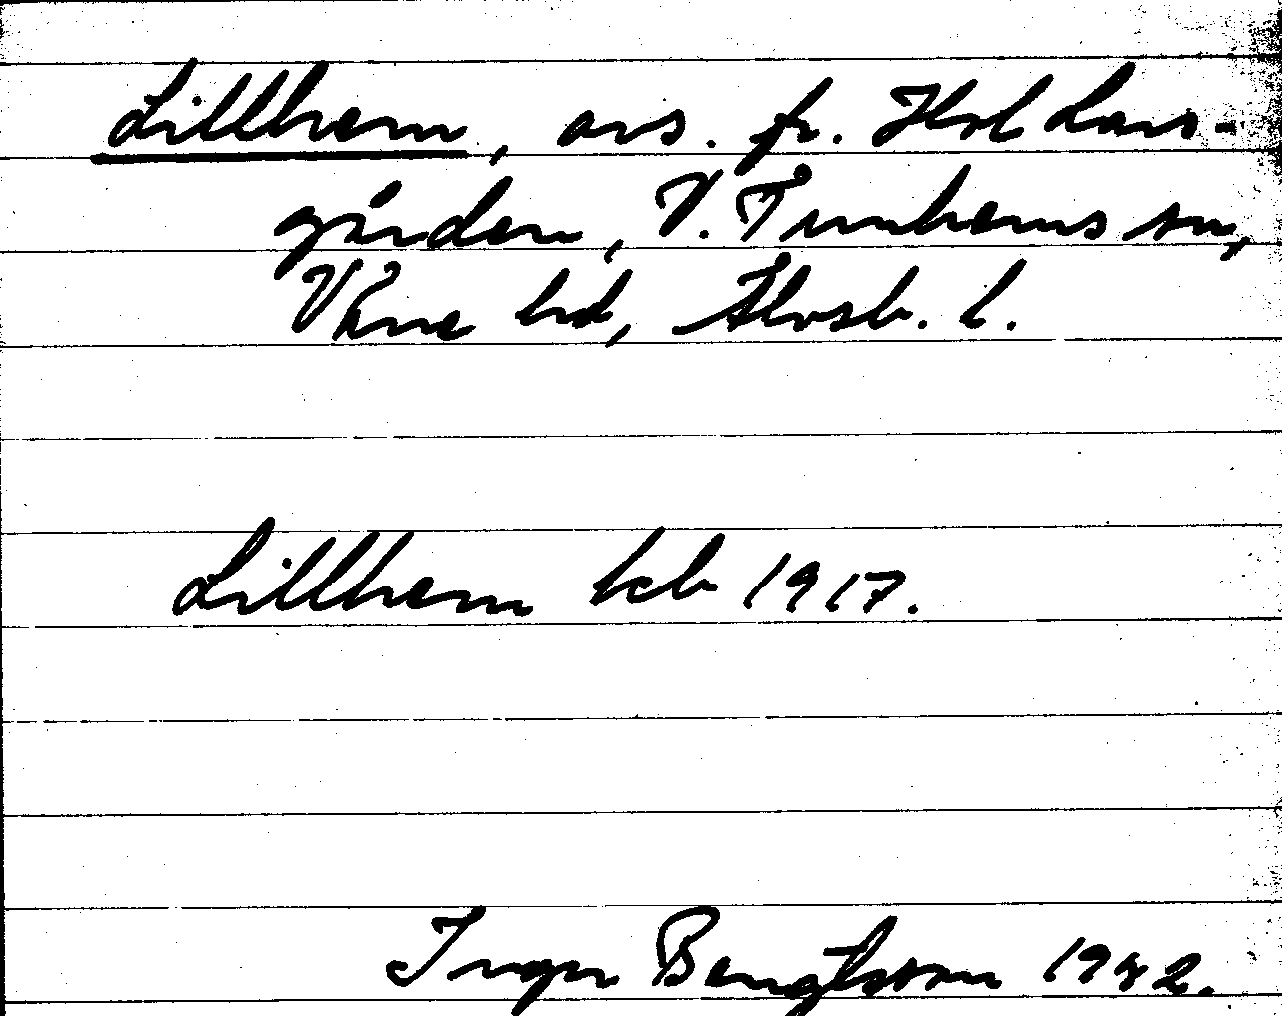 Lillhem, avs. fr. Hol Lars-
gården, V. Tunhems sn,
Väne hd, Älvsb. l.
Lillhem kcb 1917.
Inger Bengtsson 1942.